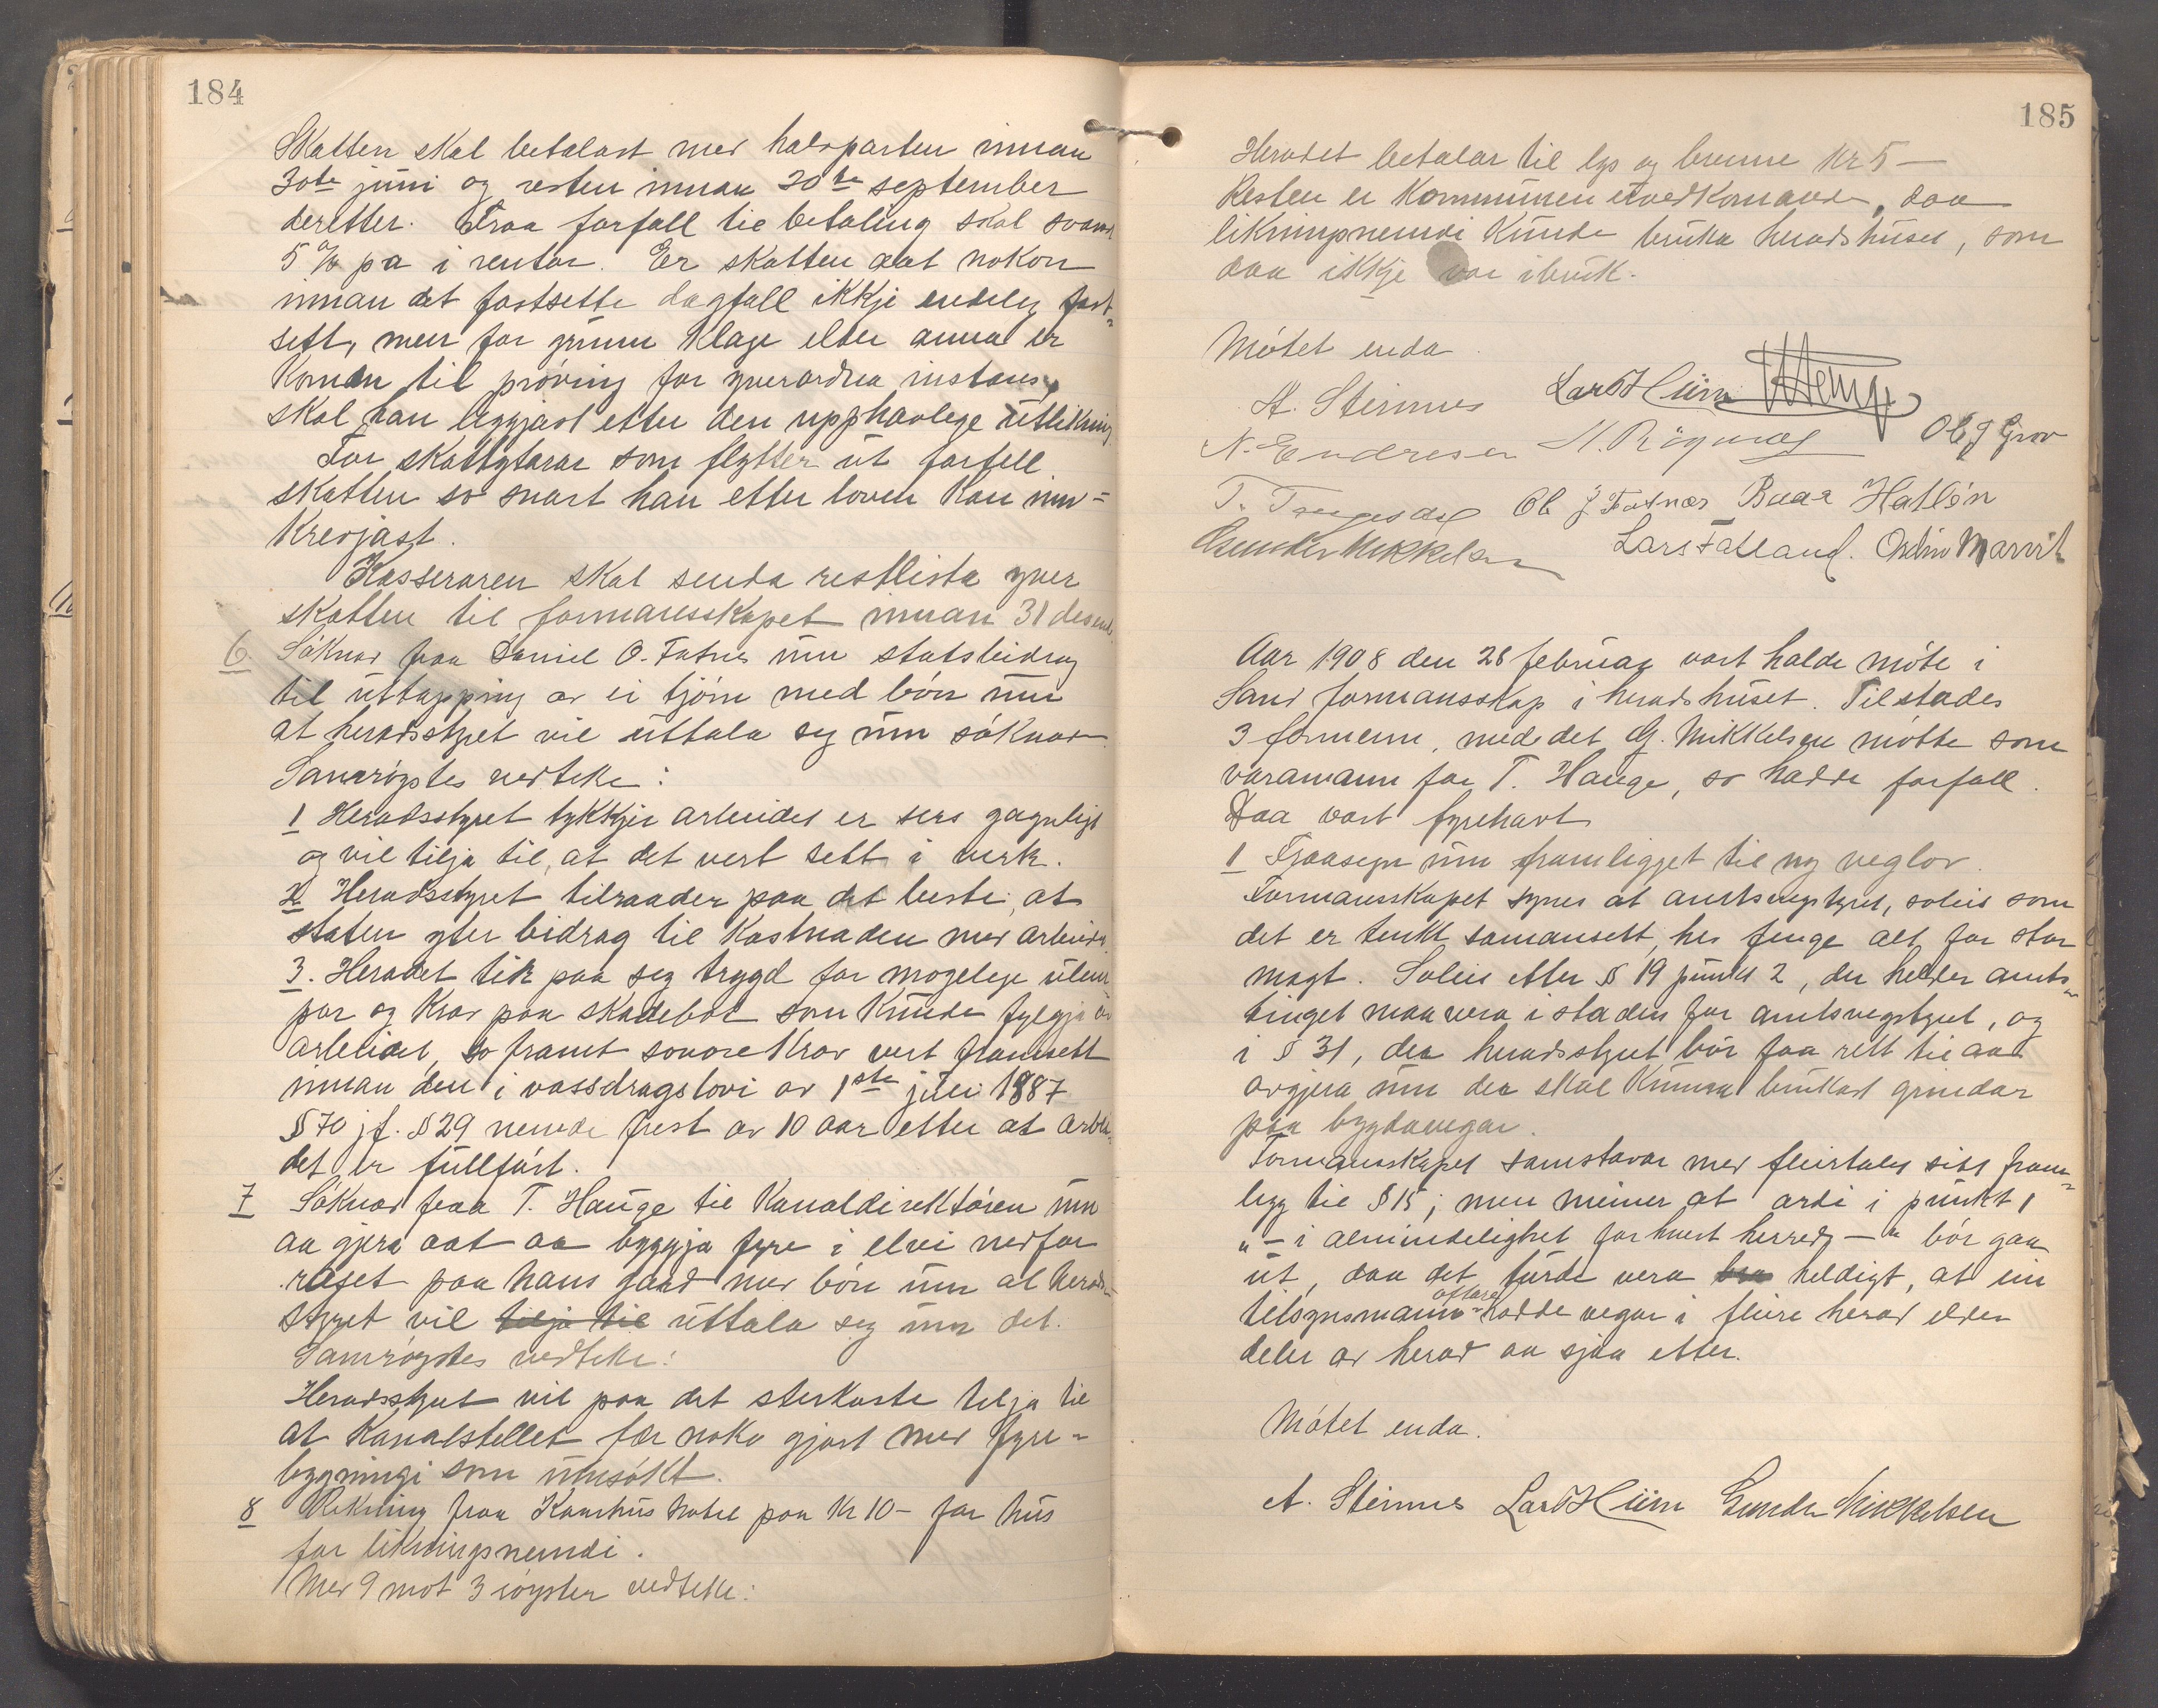 184
Skatten skal betalast med halvparten innan
30te juni og resten innan 20de september
deretter. Fraa forfall til betaling skal svarast
5 % pa i rentor. Er skatten aat nokon
innan det fastsette dagfall ikkje endeleg fast-
sett, men for grunn klage elder anna er
komen til prøving for yverordna instans,
skal han leggjast etter den upphavlege utlikning
For skattytarar som flytter ut forfell
skatten so snart han etter loven kan inn-
krevjast.
Kasseraren skal senda restlista yver
skatten til formansskapet innan 31 desemb.
6. Søknad fraa Daniel O. Fatnes um statsbidrag
til uttapping av ei tjørn med bøn um
at heradsstyret vil uttala seg um søknaden
Samrøystes vedteke:
1 Heradsstyret tykkjer arbeidet er sers gagnligt
og vil tilja til, at det vert sett i verk.
2 Heradsstyret tilraader paa det beste, at
staten yter bidrag til kostnaden med arbeidet
3. Heradet tek paa seg trygd for mogelege ulem-
por og krav paa skadebot som kunde fylgja av
arbeidet, so framt sovore krav vert framsett
innan den i vassdragslovi av 1ste juli 1887
§ 70 jf. § 29 nemde frest av 10 aar etter at arbei-
det er fullført.
7 Søknad fraa T. Hauge til Kanaldirektøren um
aa gjera aat aa byggja fyre i elvi nedfor
raset paa hans gard med bøn um at herads-
styret vil tilja til uttala seg um det.
Samrøystes vedteke:
Heradsstyret vil paa det sterkaste tilja til
at Kanalstellet fær noko gjort med fyre-
bygningi som umsøkt.
8 Rekning fraa Kaarhus hotel paa Kr 10- for hus
for likningsnemdi.
Med 9 mot 3 røyster vedteke:
185
Heradet betalar til lys og brenne Kr 5-
Resten er Kommunen uvedkomande, daa
likningsnemdi kunde bruka heradshuset, som
daa ikkje var ibruk.
Møtet enda.
A. Steinnes Lars Hiim T Hauge
N. Endresen Ol J Grov
T. Tengesdal Ol J Fatnes Baar Hatløn
Gunder Mikkelsen Lars Fatland. Marvik
Aar 1908 den 28 februar vart halde møte i
Sand formansskap i heradshuset. Tilstades
3 formenn, med det G. Mikkelsen møtte som
varamann for T. Hauge, so hadde forfall.
Daa vart fyrehavt
1 Fraasegn um framligget til ny veglov.
Formansskapet synes at amtsvegstyret, soleis som
det er tenkt samansett, her fenge alt for stor
magt. Soleis etter § 19 punkt 2, der helder amts-
tinget maa vera i staden for amtsvegstyret, og
i § 31, der heradsstyret bør faa rett til aa
avgjera um der skal kunna brukast grindar
paa bygdavegar.
Formansskapet samstavar med fleirtalets sitt fram-
legg til § 15; men meiner at ordi i punkt 1
"- i almindelighet for hvert herred -" bør gaa
ut, daa det turde vera bra heldigt, at ein
oftare
tilsynsmann hadde vegar i fleire herad elder
deler av herad aa sjaa etter.
Møtet enda.
A. Steinnes Lars Hiim Gunder Mikkelsen